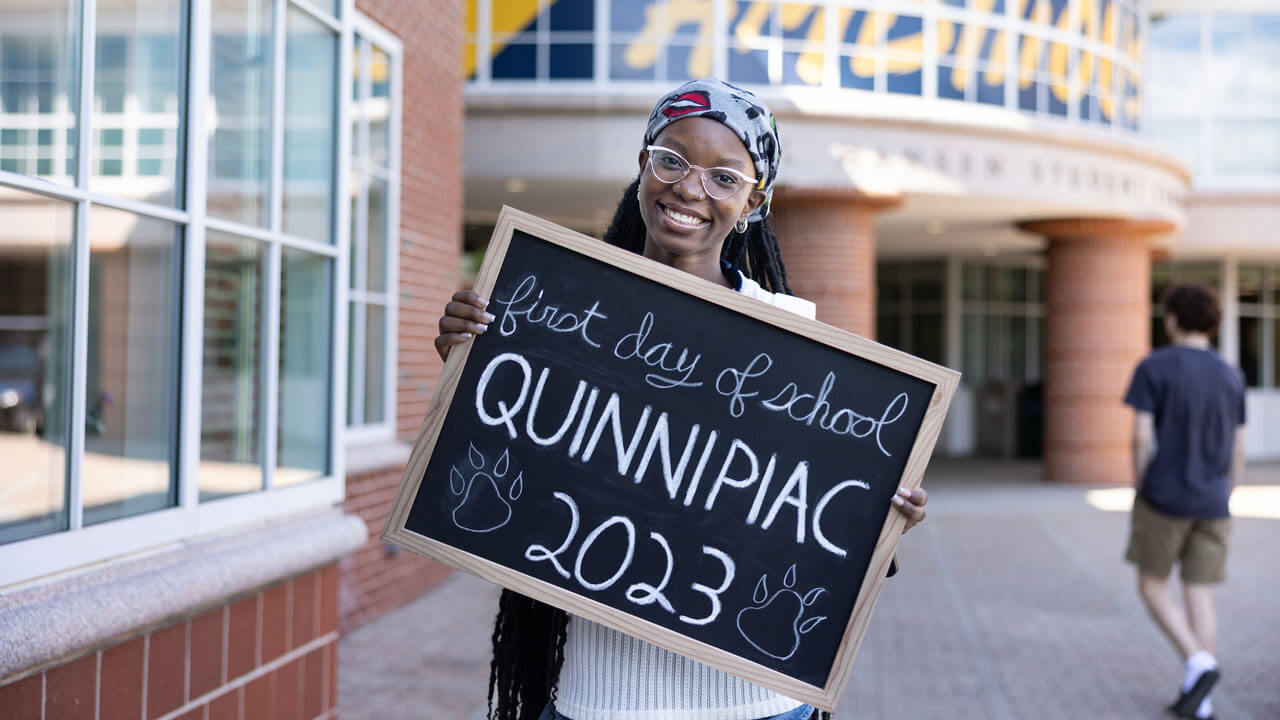 first day of school
QUINNIPIAC
2023
STUDENT